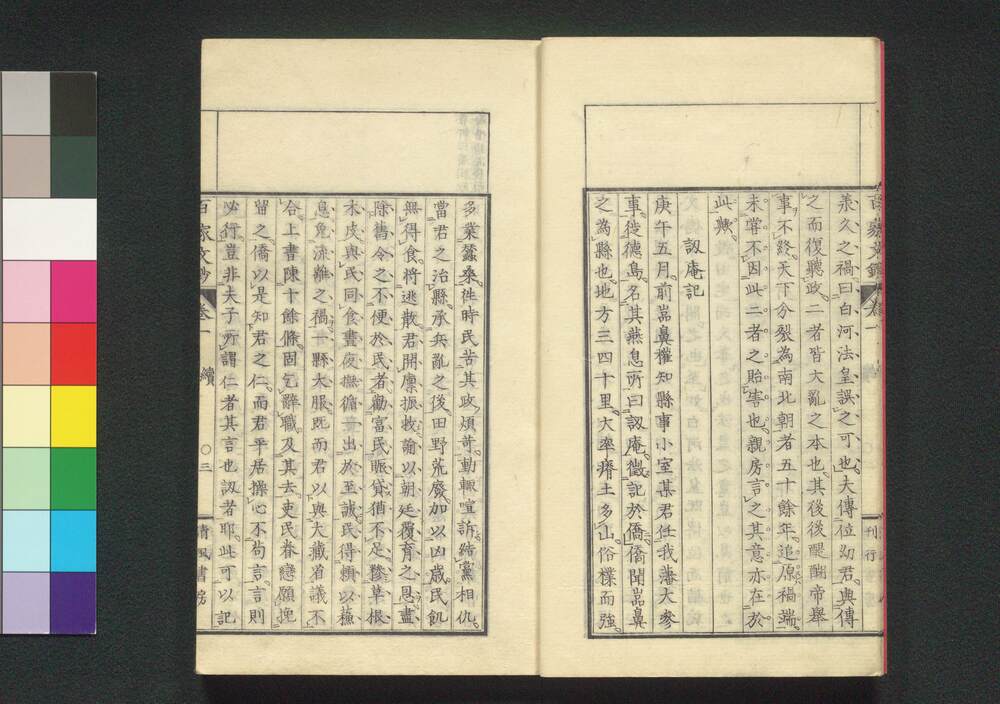 百家文鈔　卷一　刊行
承久之禍曰白河法皇誤之可也夫傳位幼君與傳
之而復聽政二者皆大亂之本也其後後醍醐帝舉
事不終天下分裂為南北朝者五十餘年追原禍端
未嘗不因此二者之貽害也親房言之其意亦在於
此歟
訒庵記
庚午五月前嵓鼻權知縣事小室某君任我藩大參
事徙德島名其燕息所曰訒庵徵記於僑僑聞嵓鼻
之為縣也地方三四十里大率瘠土多山俗樸而強
多業蠶桑徃時民苦其政煩苛動輒喧訴結黨相仇
當君之治縣承兵亂之後田野荒廢加以凶歲民飢
無得食將逃散君開廩振救諭以朝廷覆育之恩盡
除舊令之不便於民者勸富民賑貸猶不足糝草根
木皮與民同食晝夜撫循壹出於至誠民得賴以蘓
息免流離之禍一縣大服既而君以與大藏省議不
合上書陳十餘條固乞辭職及其去吏民眷戀願挽
留之僑以是知君之仁而君平居操心不苟言言則
必行豈非夫子所謂仁者其言也訒者耶此可以記
百家文鈔　卷一　續　○三　清風書房